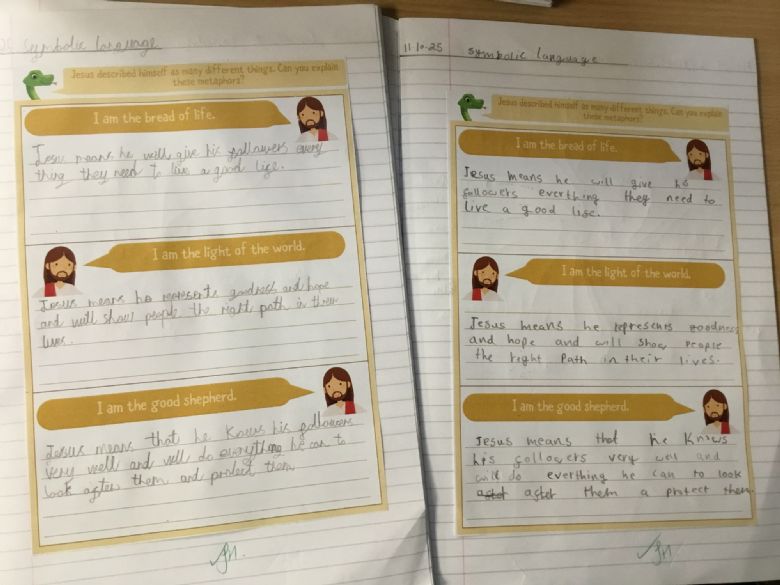 symbolic language
Jesus described himself as many different things. Can you explain
these metaphors?
I am the bread of life.
Jesu means he will give his followers every
thing they need to live a good life.
I am the light of the world.
Jesus means he represents goodness and hope
and will show people the right path in their
lives.
I am the good shepherd.
Jesus means that he knows his followers
very well and will do everything he can to
look after them and protect them
11.10.25 symbolic language
Jesus described himself as many different things. Can you explain
these metaphors?
I am the bread of life.
Jesus means he will give his
followers everthing they need to
live a good life.
I am the light of the world.
Jesus means he represents goodness
and hope and will show people
the right path in their lives.
I am the good shepherd.
Jesus means that he knows
his followers very well and
will do everthing he can to look
after them a protect them.